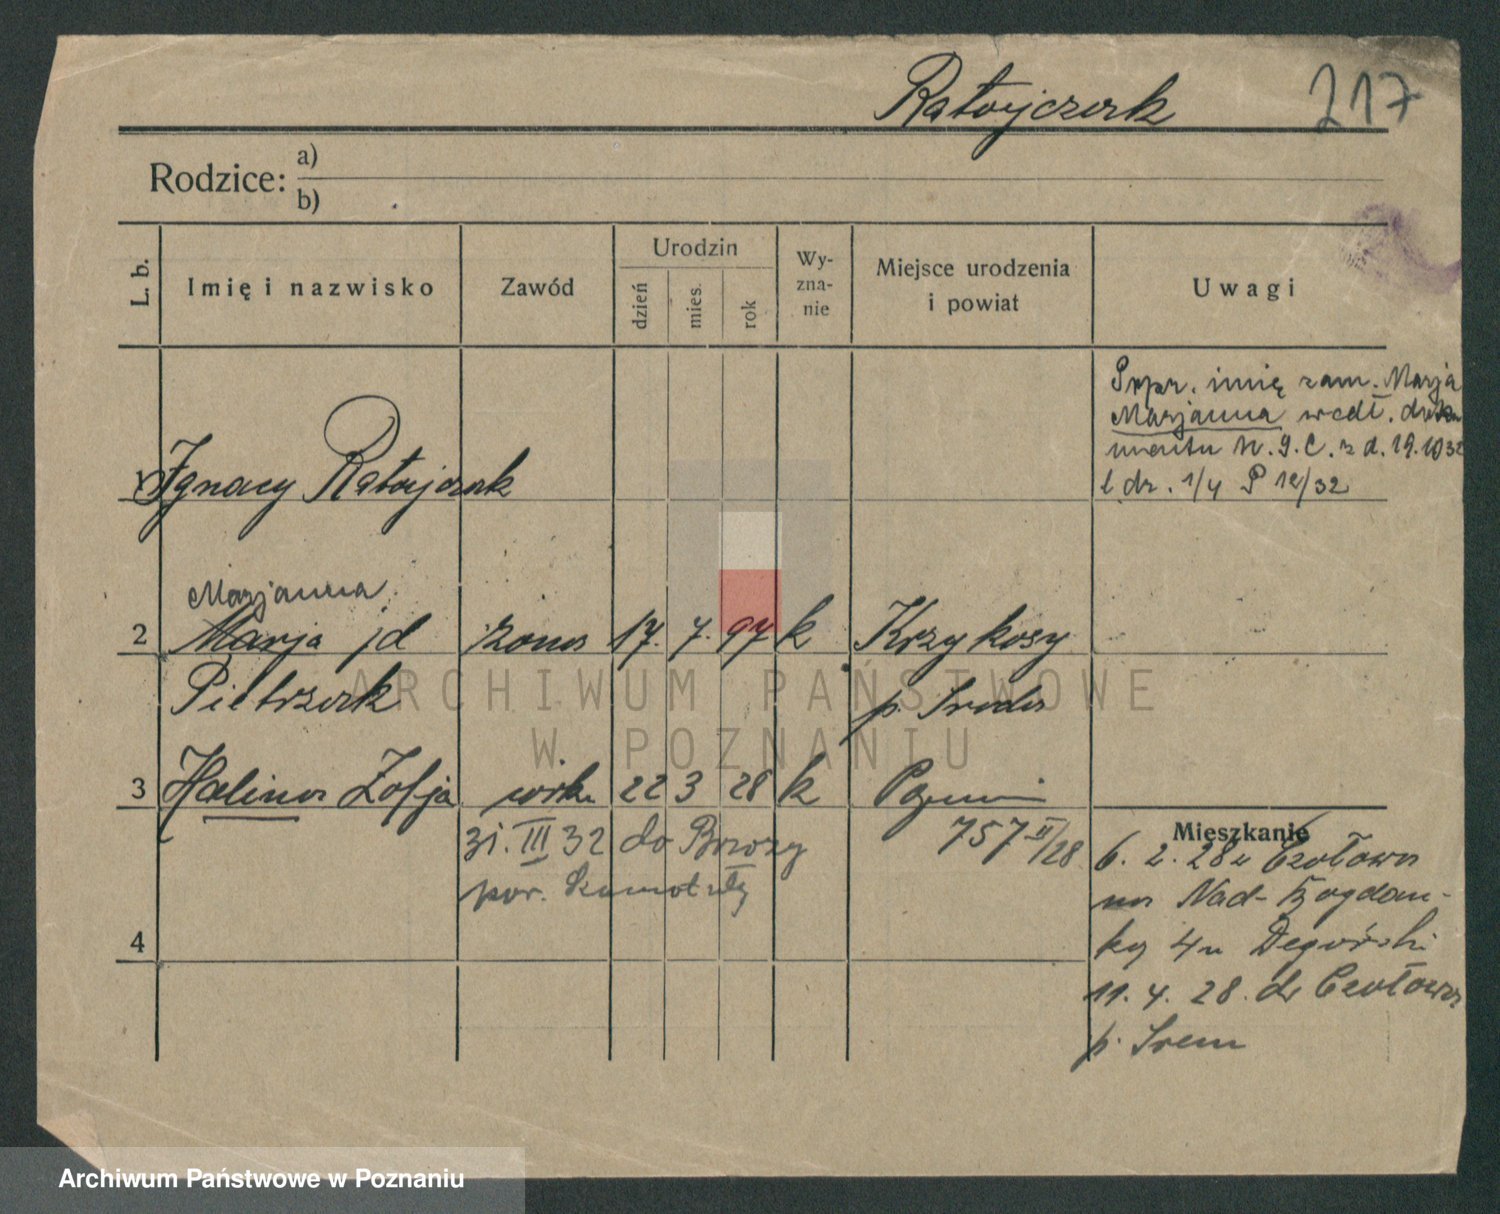 Ratajczak 217
Rodzice: a)
b)
L. b. Imię i nazwisko Zawód Urodzin dzień mies. rok Wy-zna-nie Miejsce urodzenia i powiat Uwagi
imię zam. Marja
Marjanna wedł. doku
mentu z d. 19.10 32
l. dz. 1/4 P 12/32
1 Ignacy Ratajczak
Marjanna
2 Marja jd żona 17. 7. 97 k Krzykosy
Pietrzak p. Środa
ARCHIWUM PAŃSTWOWE
W POZNANIU
3 Halina Zofja 22 3 28 k Poznań
31. III 32 do Brzozy 757 II/28
pow. Szamotuły
Mieszkanie
6. 2. 28 z Czołowa
na Nad-Bogdan-
ką 4 u Degórski
4
11. 4. 28. do Czołowa
p. Śrem
Archiwum Państwowe w Poznaniu